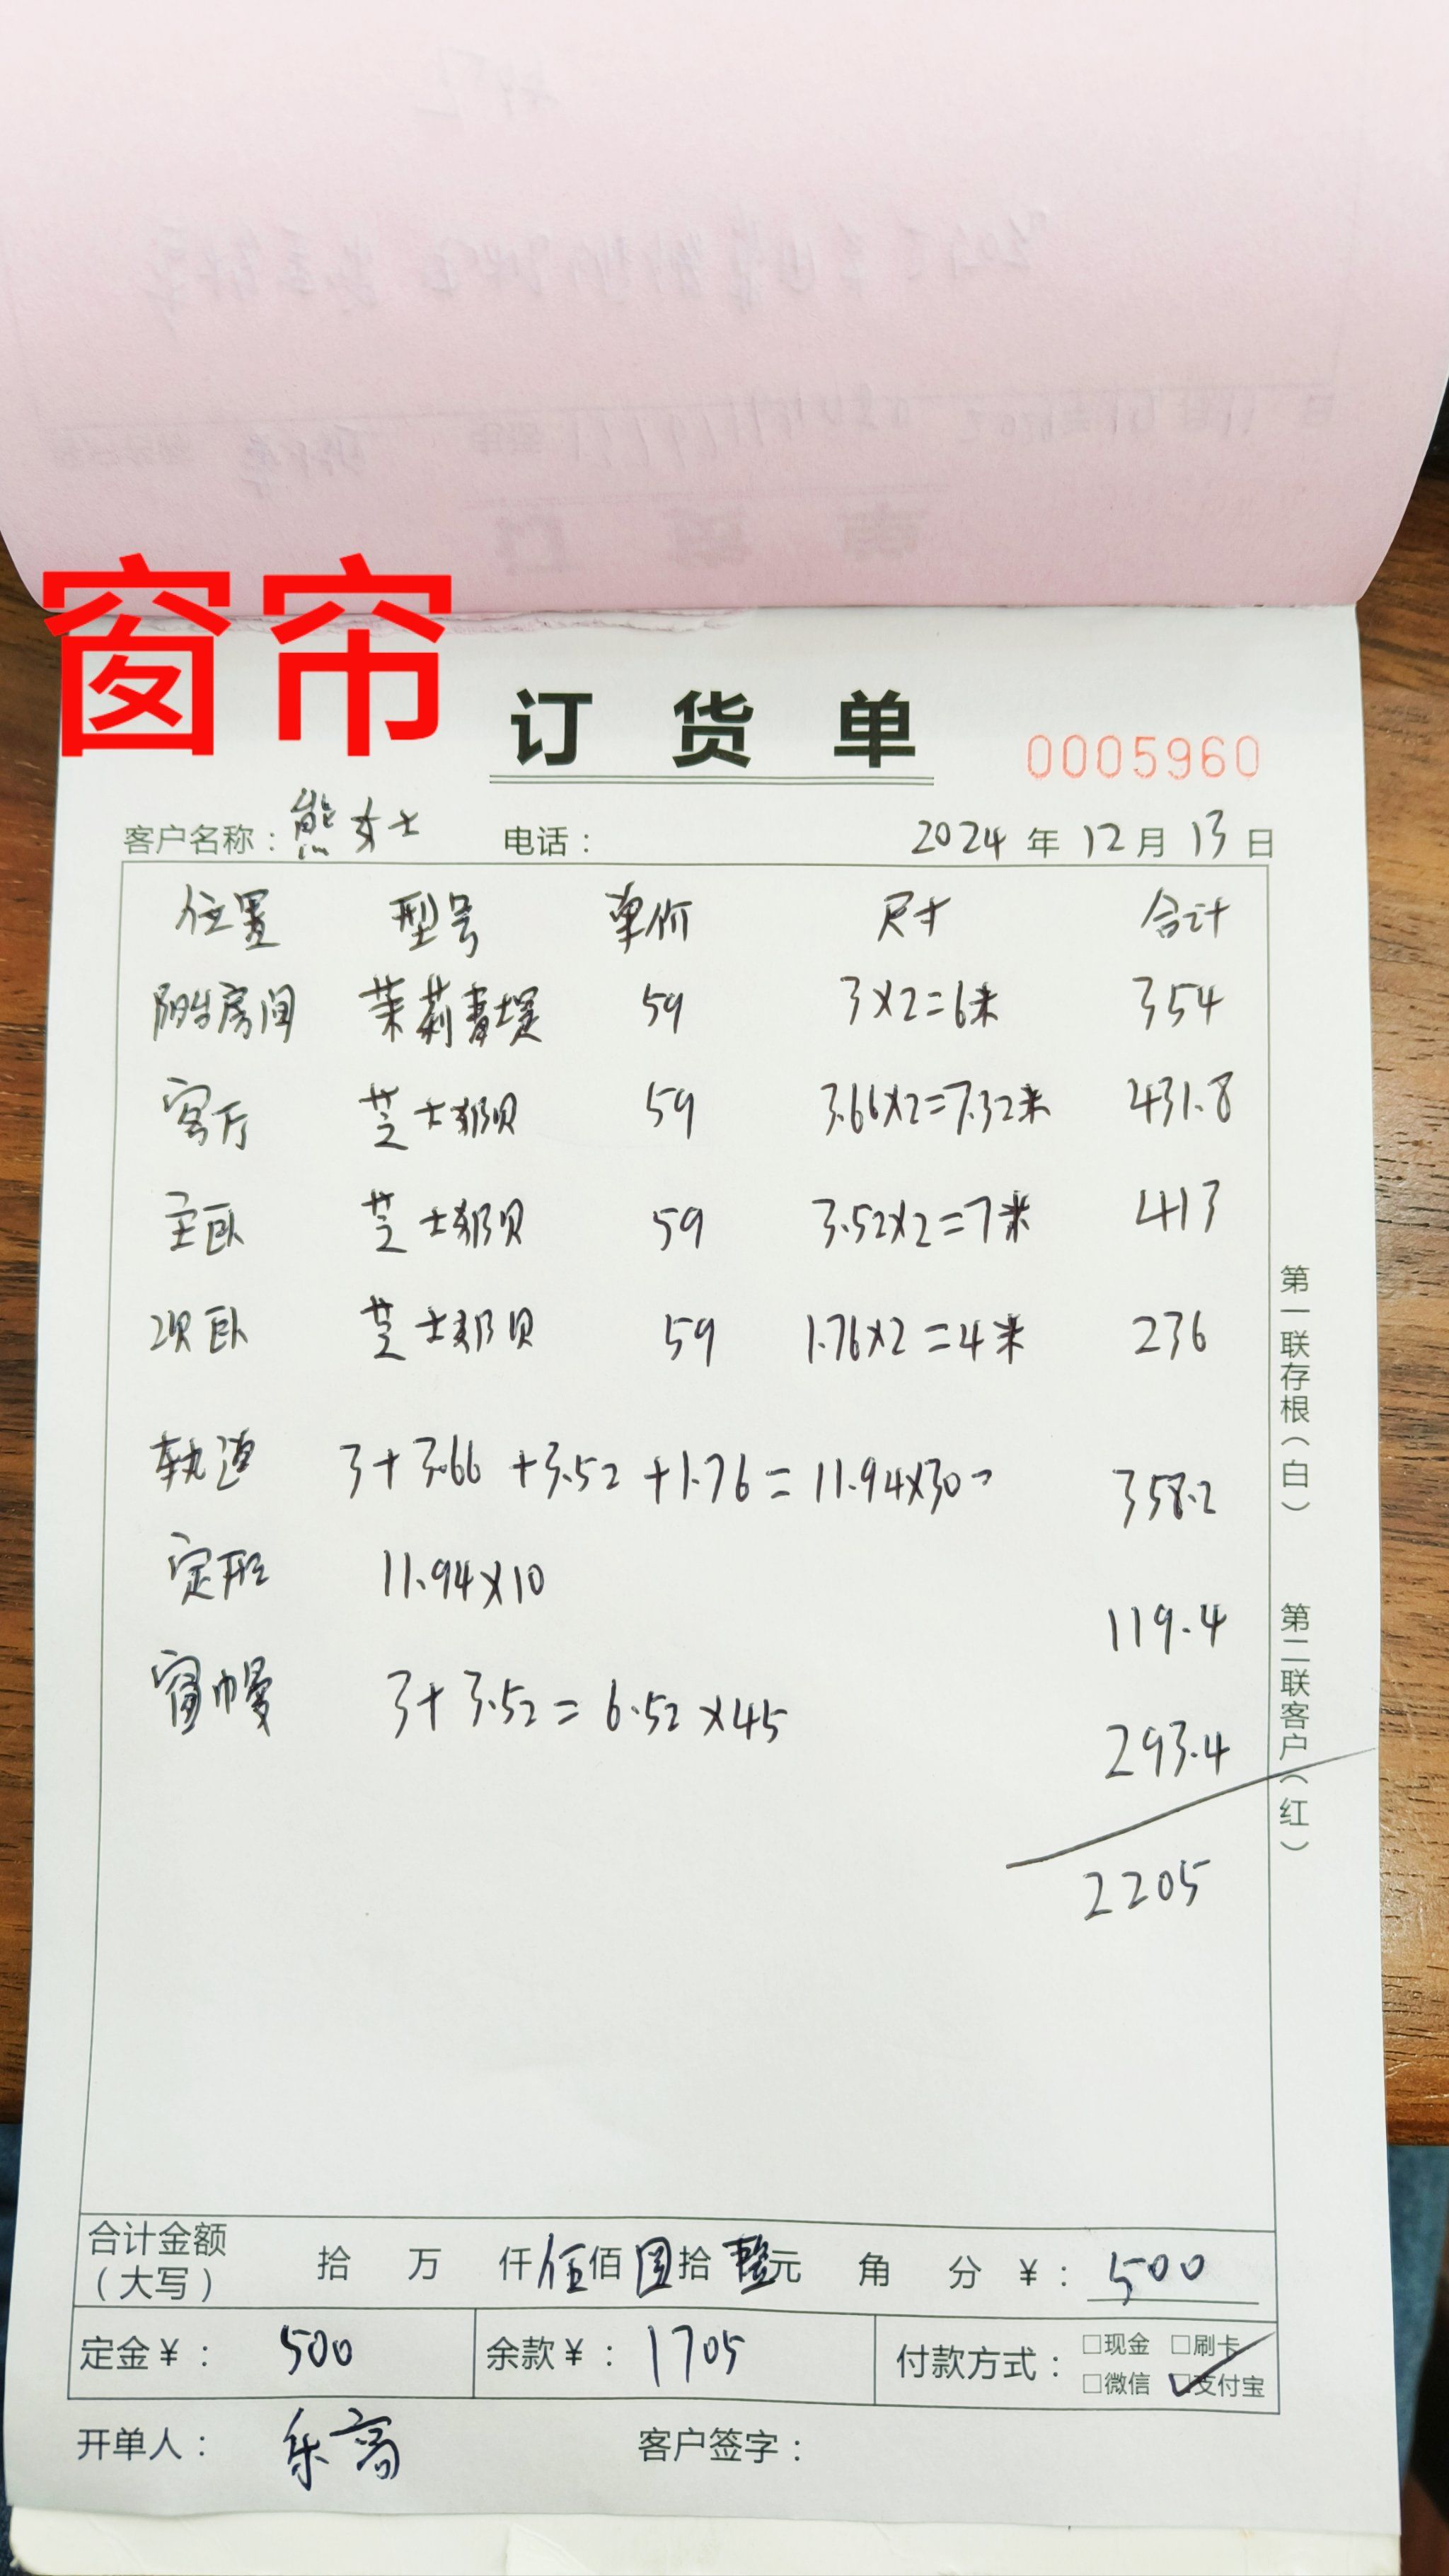 窗帘
订货单
0005960
客户名称：熊女士 电话： 2024年12月13日
位置 型号 单价 尺寸 合计
房间 茉莉 59 3×2=6米 354
客厅 芝士郡贝 59 3.66×2=7.32米 431.8
主卧 芝士郡贝 59 3.52×2=7米 413
次卧 芝士郡贝 59 1.76×2=4米 236
轨道 3+3.66+3.52+1.76=11.94×30= 358.2
定形 11.94×10 119.4
窗幔 3+3.52=6.52×45 293.4
2205
第一联存根（白） 第二联客户（红）
合计金额（大写） 拾 万 仟 伍佰 圆拾 整元 角 分 ￥：500
定金￥：500 余款￥：1705 付款方式：□现金 □刷卡
□微信 ☑支付宝
开单人：乐高 客户签字：